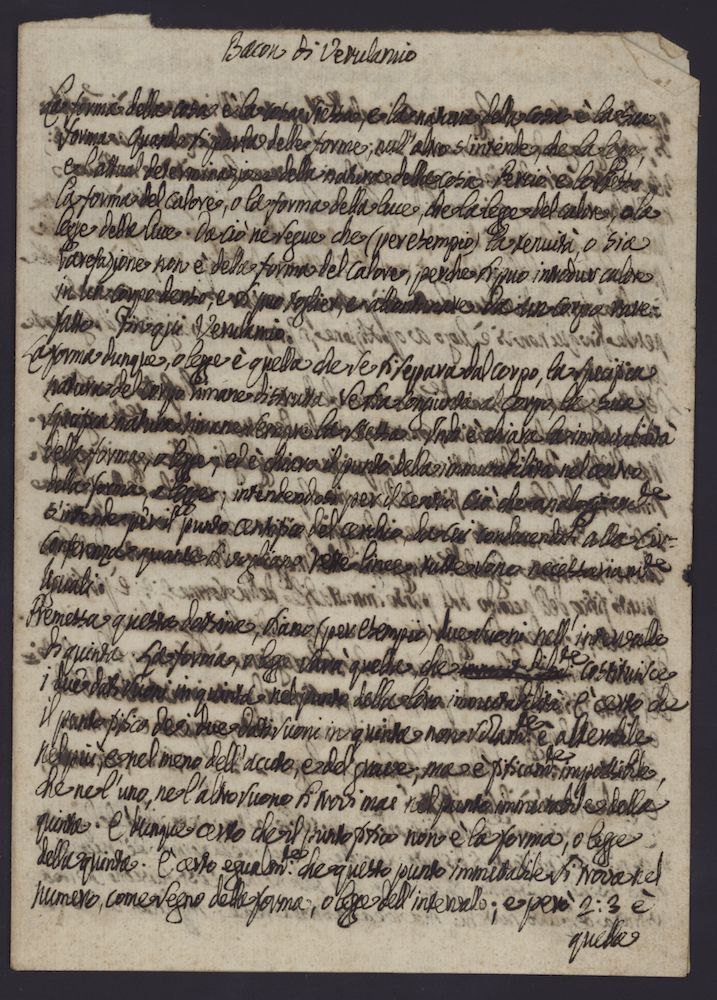 Bacon di Verulamio
La forma della cosa è la cosa stessa, e la natura della cosa è la sua
forma. Quando si parla delle forme, null'altro s'intende, che la legge,
e l'attual determinazione della natura della cosa. Perciò è lo stesso
la forma del calore, o la forma della luce, che la lege del calore, o la
lege della luce. Da ciò ne segue che (per esempio) la tenuità, o sia
rarefazione non è della forma del calore, perche si può introdur calore
in un corpo denso, e si può toglier, e allontanare da un corpo rare:
fatto. Fin qui Verulamio.
La forma dunque, o legge è quella che se si separa dal corpo, la specifica
natura del corpo rimane distrutta. Se sta congiunta al corpo, la sua
specifica natura rimane sempre la stessa. Indi è chiara la immutabilità
della forma, o legge; ed è chiaro il punto della immutabilità nel centro
della forma, o legge; intendendosi per il centro ciò che analogicam.te
s'intende per il punto centrico del cerchio, da cui conducendosi alla cir:
conferenza quante si vogliano rette linee, tutte sono necessariam.te
uguali.
Premessa questa dottrina, siano (per esempio) due suoni nell'intervallo
di quinta. La forma, o legge sarà quella, che costituisce
i due dati suoni in quinta nel punto della loro immutabilità. È certo che
il punto fisico dei due dati suoni in quinta non solam.te è alterabile
nel più, e nel meno dell'acuto, e del grave; ma è fisicam.te impossibile,
che nè l'uno, nè l'altro suono si trovi mai nel punto immutabile della
quinta. È dunque certo che il punto fisico non è la forma, o legge
della quinta. È certo egualm.te che questo punto immutabile si trova nel
numero, come segno della forma, o legge dell'intervallo; e però 2:3 è
quella